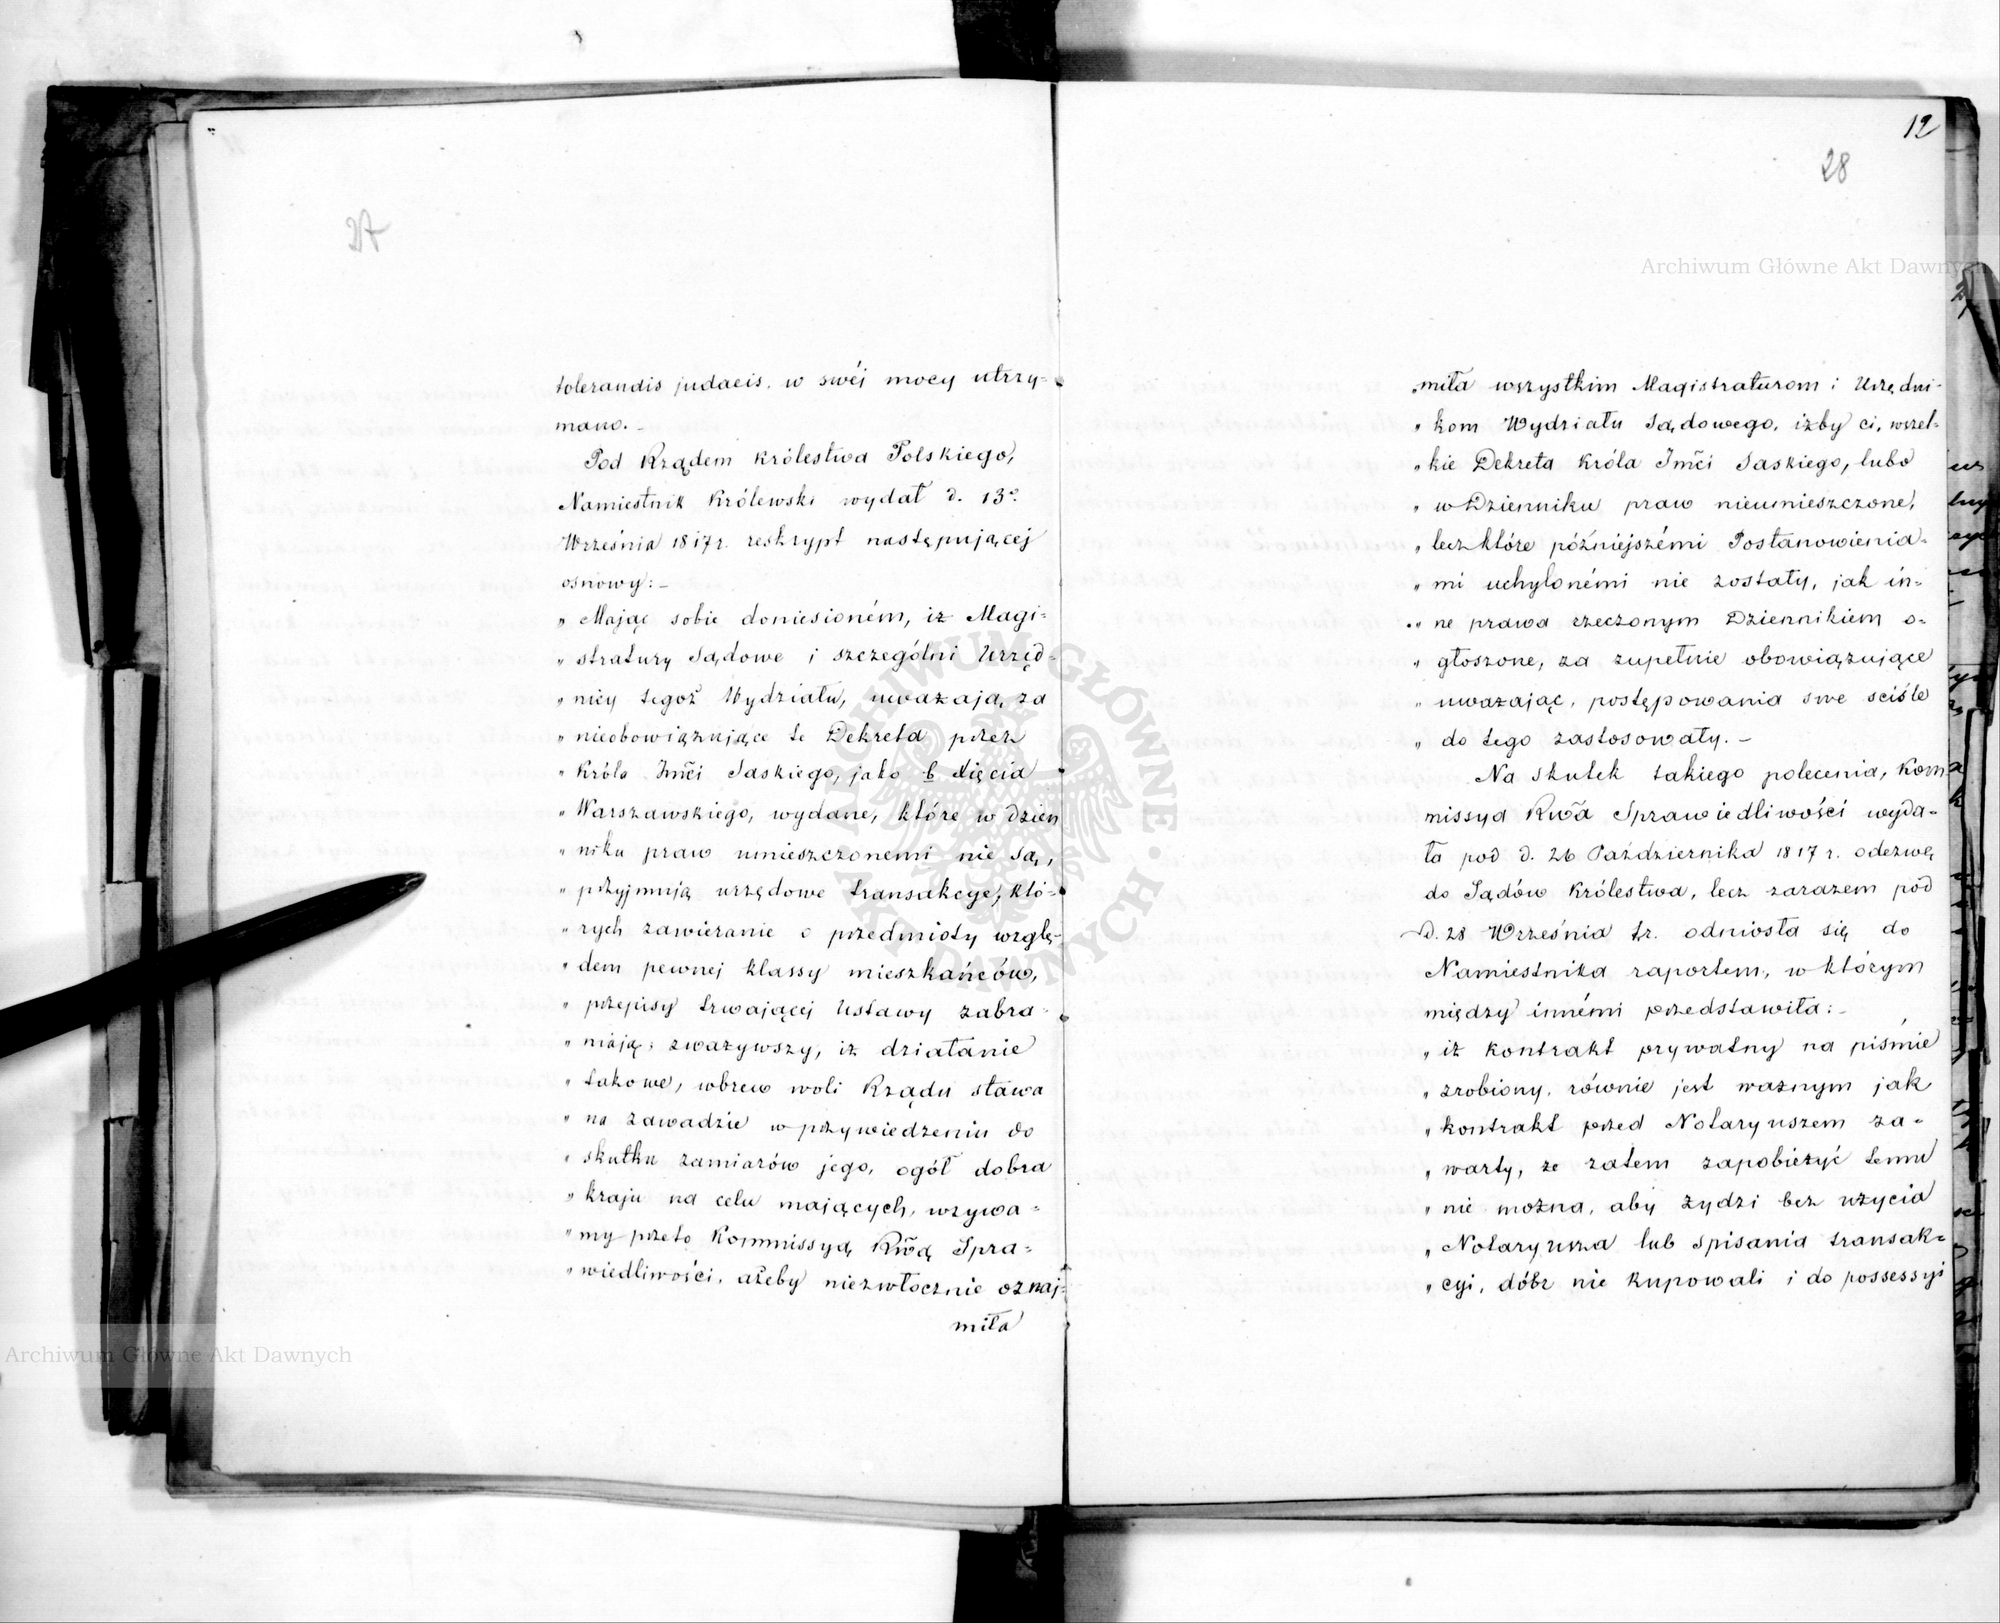 27
tolerandis judaeis. w swéj mocy utrzy-
mano. -
Pod Rządem Królestwa Polskiego,
Namiestnik Królewski wydał d. 13º
Września 1817 r. reskrypt następującej
osnowy: -
„ Mając sobie doniesioném, iż Magi-
„ stratury Sądowe i szczególni Urzęd-
„ nicy tegoż Wydziału, uważają za
„ nieobowiązujące te Dekreta przez
„ Króla Jmci Saskiego, jako b. Xięcia
„ Warszawskiego, wydane, które w Dzien
„ niku praw umieszczonemi nie są,
„ przyjmują urzędowe transakcye, któ-
„ rych zawieranie o przedmioty wzglę-
„ dem pewnej klassy mieszkańców,
„ przepisy trwającej Ustawy zabra-
„ niają; zważywszy, iż działanie
„ takowe, wbrew woli Rządu stawa
„ na zawadzie w przywiedzeniu do
„ skutku zamiarów jego, ogół dobra
„ kraju na celu mających, wzywa-
„ my przeto Kommissyą Rwą Spra-
„ wiedliwości, ażeby niezwłocznie oznaj-
miła
12
28
„ miła wszystkim Magistraturom i Urzędni-
„ kom Wydziału Sądowego, iżby ci, wszel-
„ kie Dekreta Króla Jmci Saskiego, lubo
„ w Dzienniku praw nieumieszczone,
„ lecz które późniejszémi Postanowienia-
„ mi uchylonémi nie zostały, jak in-
„ ne prawa rzeczonym Dziennikiem o-
„ głoszone, za zupełnie obowiązujące
„ uważając, postępowania swe sciśle
„ do tego zastosowały. -
Na skutek takiego polecenia, Kom
missya Rwa Sprawiedliwości wyda-
ła pod d. 26 Października 1817 r. odezwę
do Sądów Królestwa, lecz zarazem pod
d. 28 Września t.r. odniosła się do
Namiestnika raportem, w którym
między innémi przedstawiła: -
„ iż kontrakt prywatny na piśmie
„ zrobiony, równie jest ważnym jak
„ kontrakt przed Notaryuszem za-
„ warty, że zatem zapobieżyć temu
„ nie można, aby żydzi bez użycia
„ Notaryusza lub spisania transak-
„ cyi, dóbr nie kupowali i do possessyi
Archiwum Główne Akt Dawnych
ARCHIWUM GŁÓWNE AKT DAWNYCH
Archiwum Główne Akt Dawnych